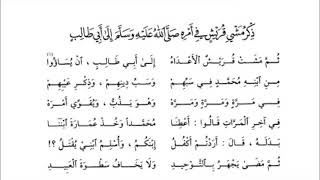 ذِكْرُ مَشْيِ قُرَيْشٍ فِي أَمْرِهِ صَلَّى اللهُ عَلَيْهِ وَسَلَّمَ إِلَى أَبِي طَالِبٍ
ثُمَّ مَشَتْ قُرَيْشٌ الْأَعْدَاءُ إِلَى أَبِي طَالِبٍ ، أَنْ يُسَاؤُوا
مِنِ ابْنِهِ مُحَمَّدٍ فِي سَبِّهِمْ وَسَبِّ دِينِهِمْ ، وَذِكْرِ عَيْبِهِمْ
فِي مَرَّةٍ وَمَرَّةٍ وَمَرَّهْ وَهْوَ يَذُبُّ ، وَيُقَوِّي أَمْرَهْ
فِي آخِرِ الْمَرَّاتِ قَالُوا : أَعْطِنَا مُحَمَّداً وَخُذْ عُمَارَةَ ابْنَنَا
بَدَلَهُ ، قَالَ : أَرَدْتُمْ أَكْفُلُ إِبْنَكُمُ ، وَأُسْلِمُ ابْنِي يُقْتَلُ ؟!
ثُمَّ مَضَى يَجْهَرُ بِالتَّوْحِيدِ وَلَا يَخَافُ سَطْوَةَ الْعَبِيدِ